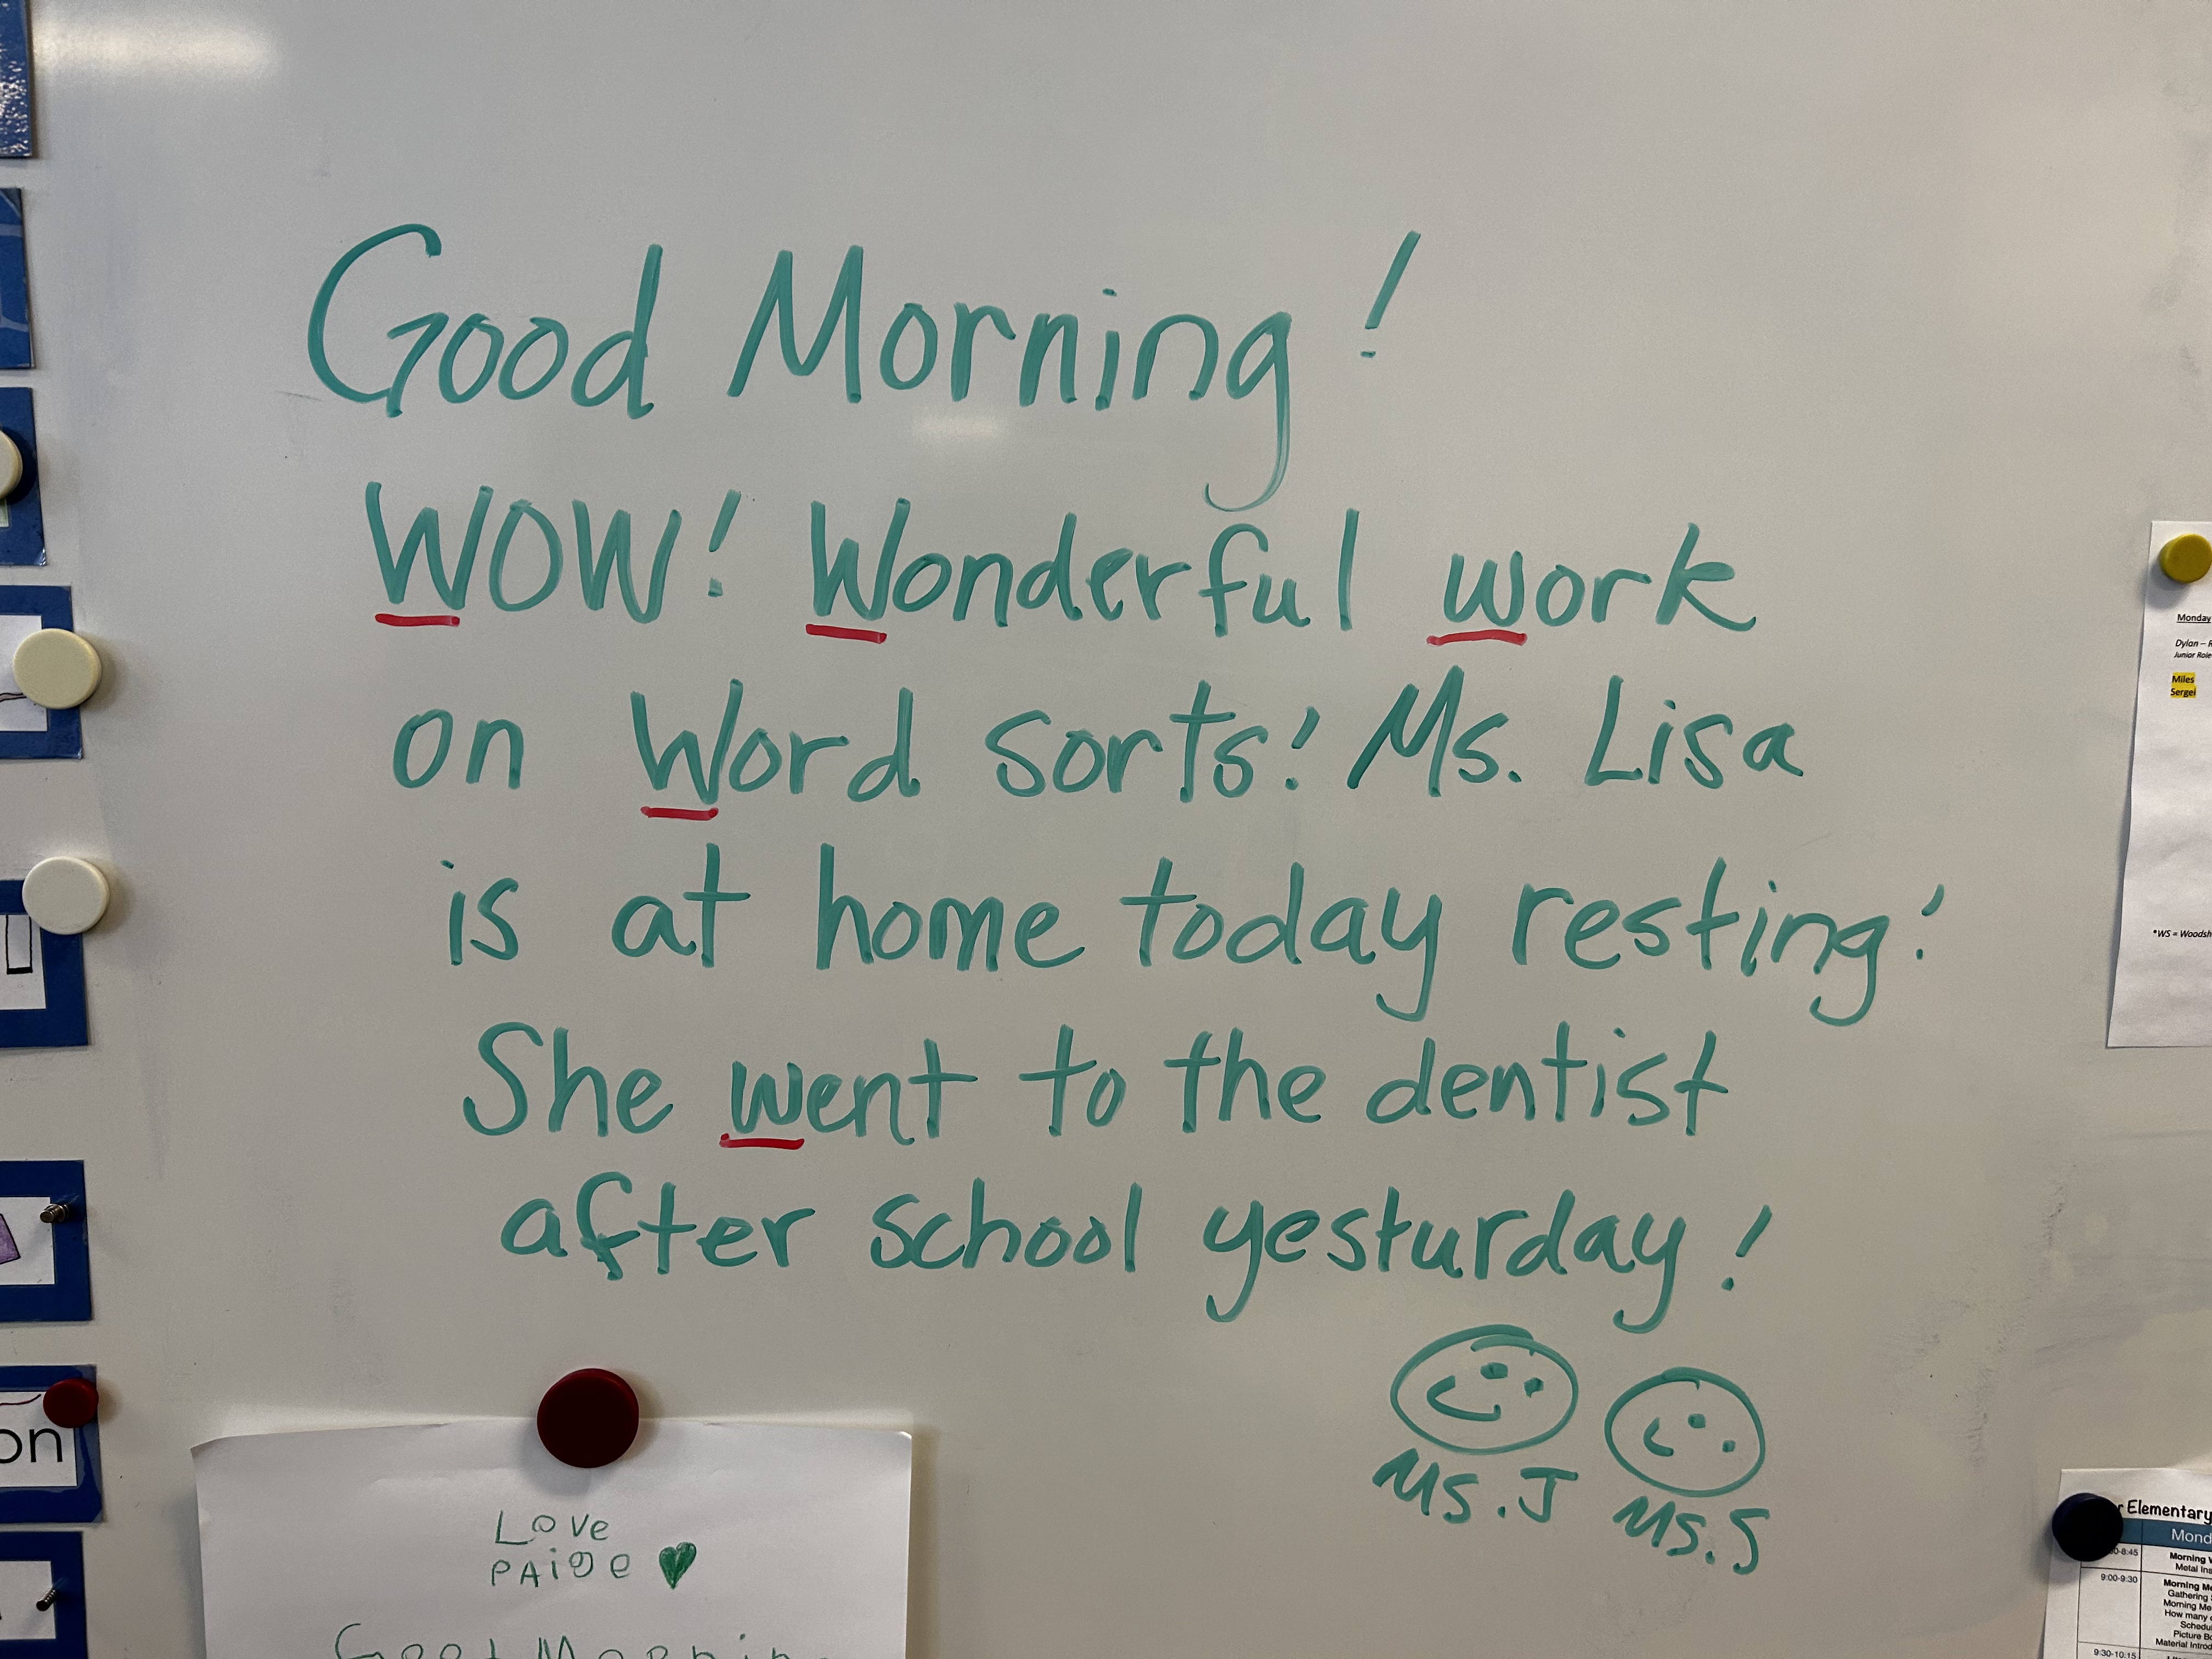 Good Morning!
WOW! Wonderful work
on Word sorts! Ms. Lisa
is at home today resting!
She went to the dentist
after school yesturday!
Ms. J Ms. S
Love
PAiGe
on
Monday
Dylan –
Junior
Miles
Sergei
*WS =
Elementary
9:00-9:30
Morning
Metal
Morning
Gathering
Morning
How many
Picture
Material
9:30-10:15